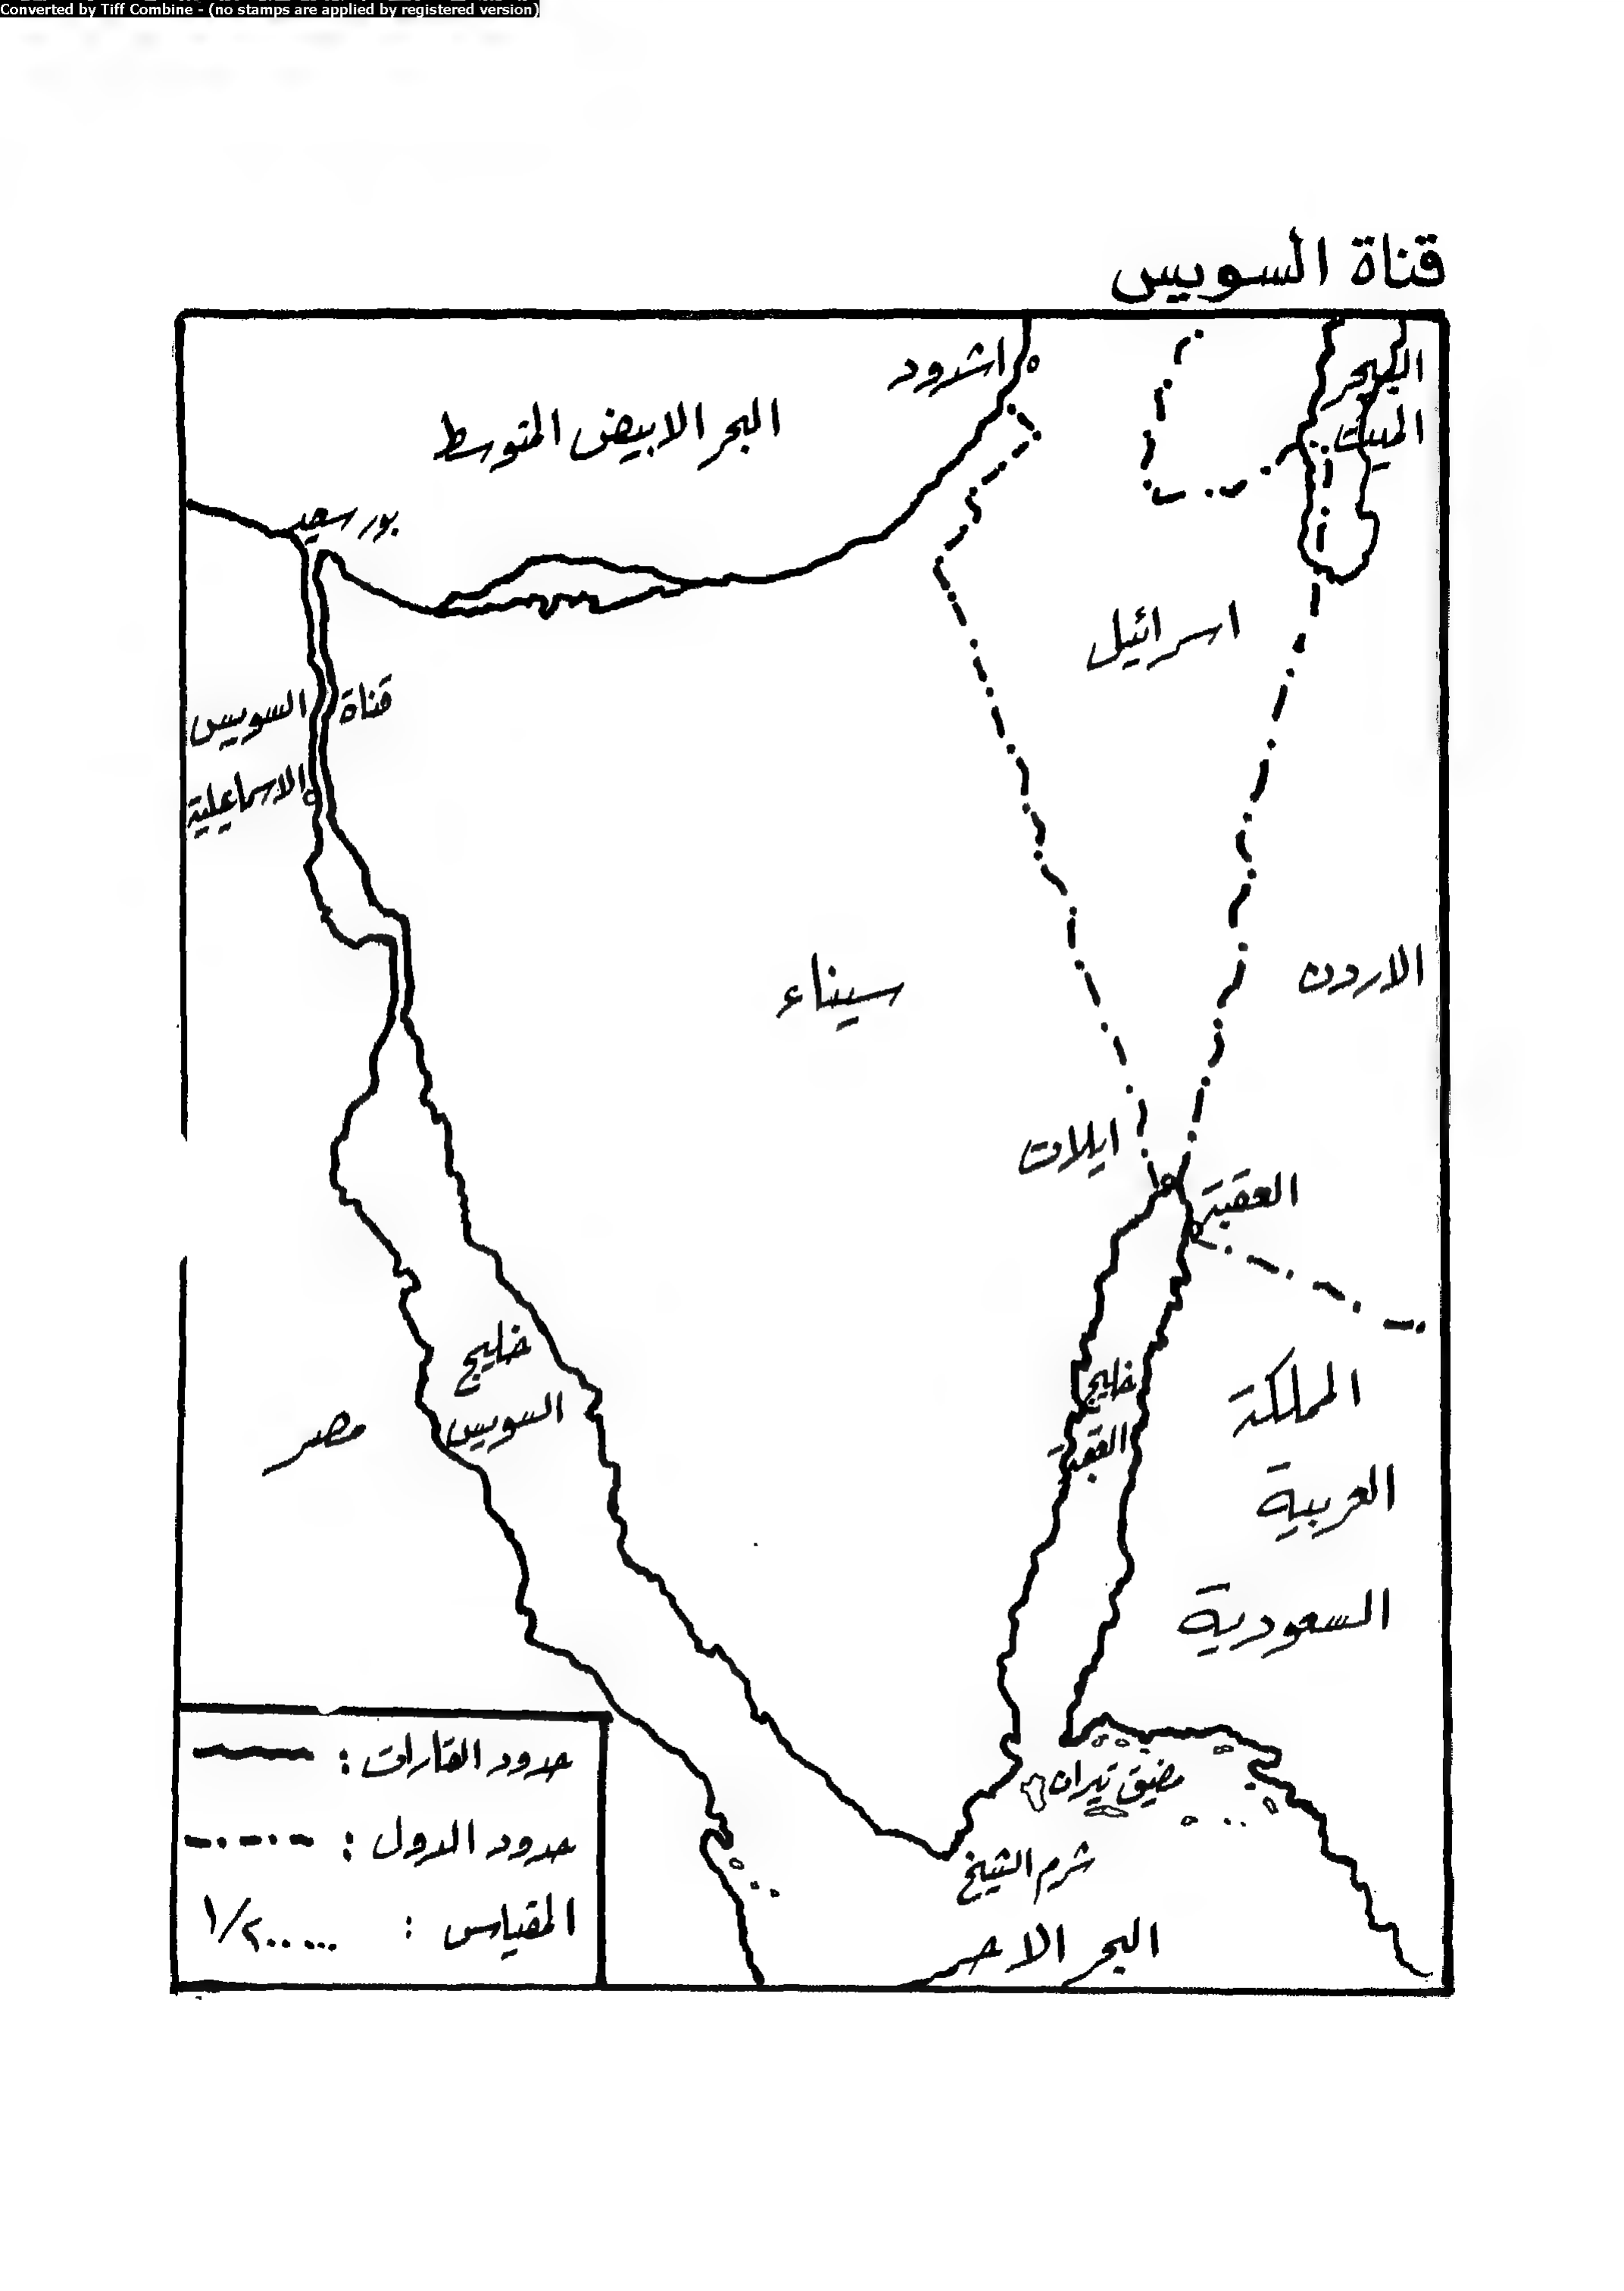 Converted by Tiff Combine - (no stamps are applied by registered version)
قناة السويس
البحر
الميت
اشدود
البحر الابيض المتوسط
بور سعيد
اسرائيل
قناة السويس
الاسماعيلية
الاردن
سيناء
ايلات
العقبة
خليج
السويس
خليج
العقبة
المملكة
العربية
السعودية
مصر
مضيق تيران
شرم الشيخ
البحر الاحمر
حدود القارات :
حدود الدول :
المقياس : ١/٢٠٠٠٠٠٠